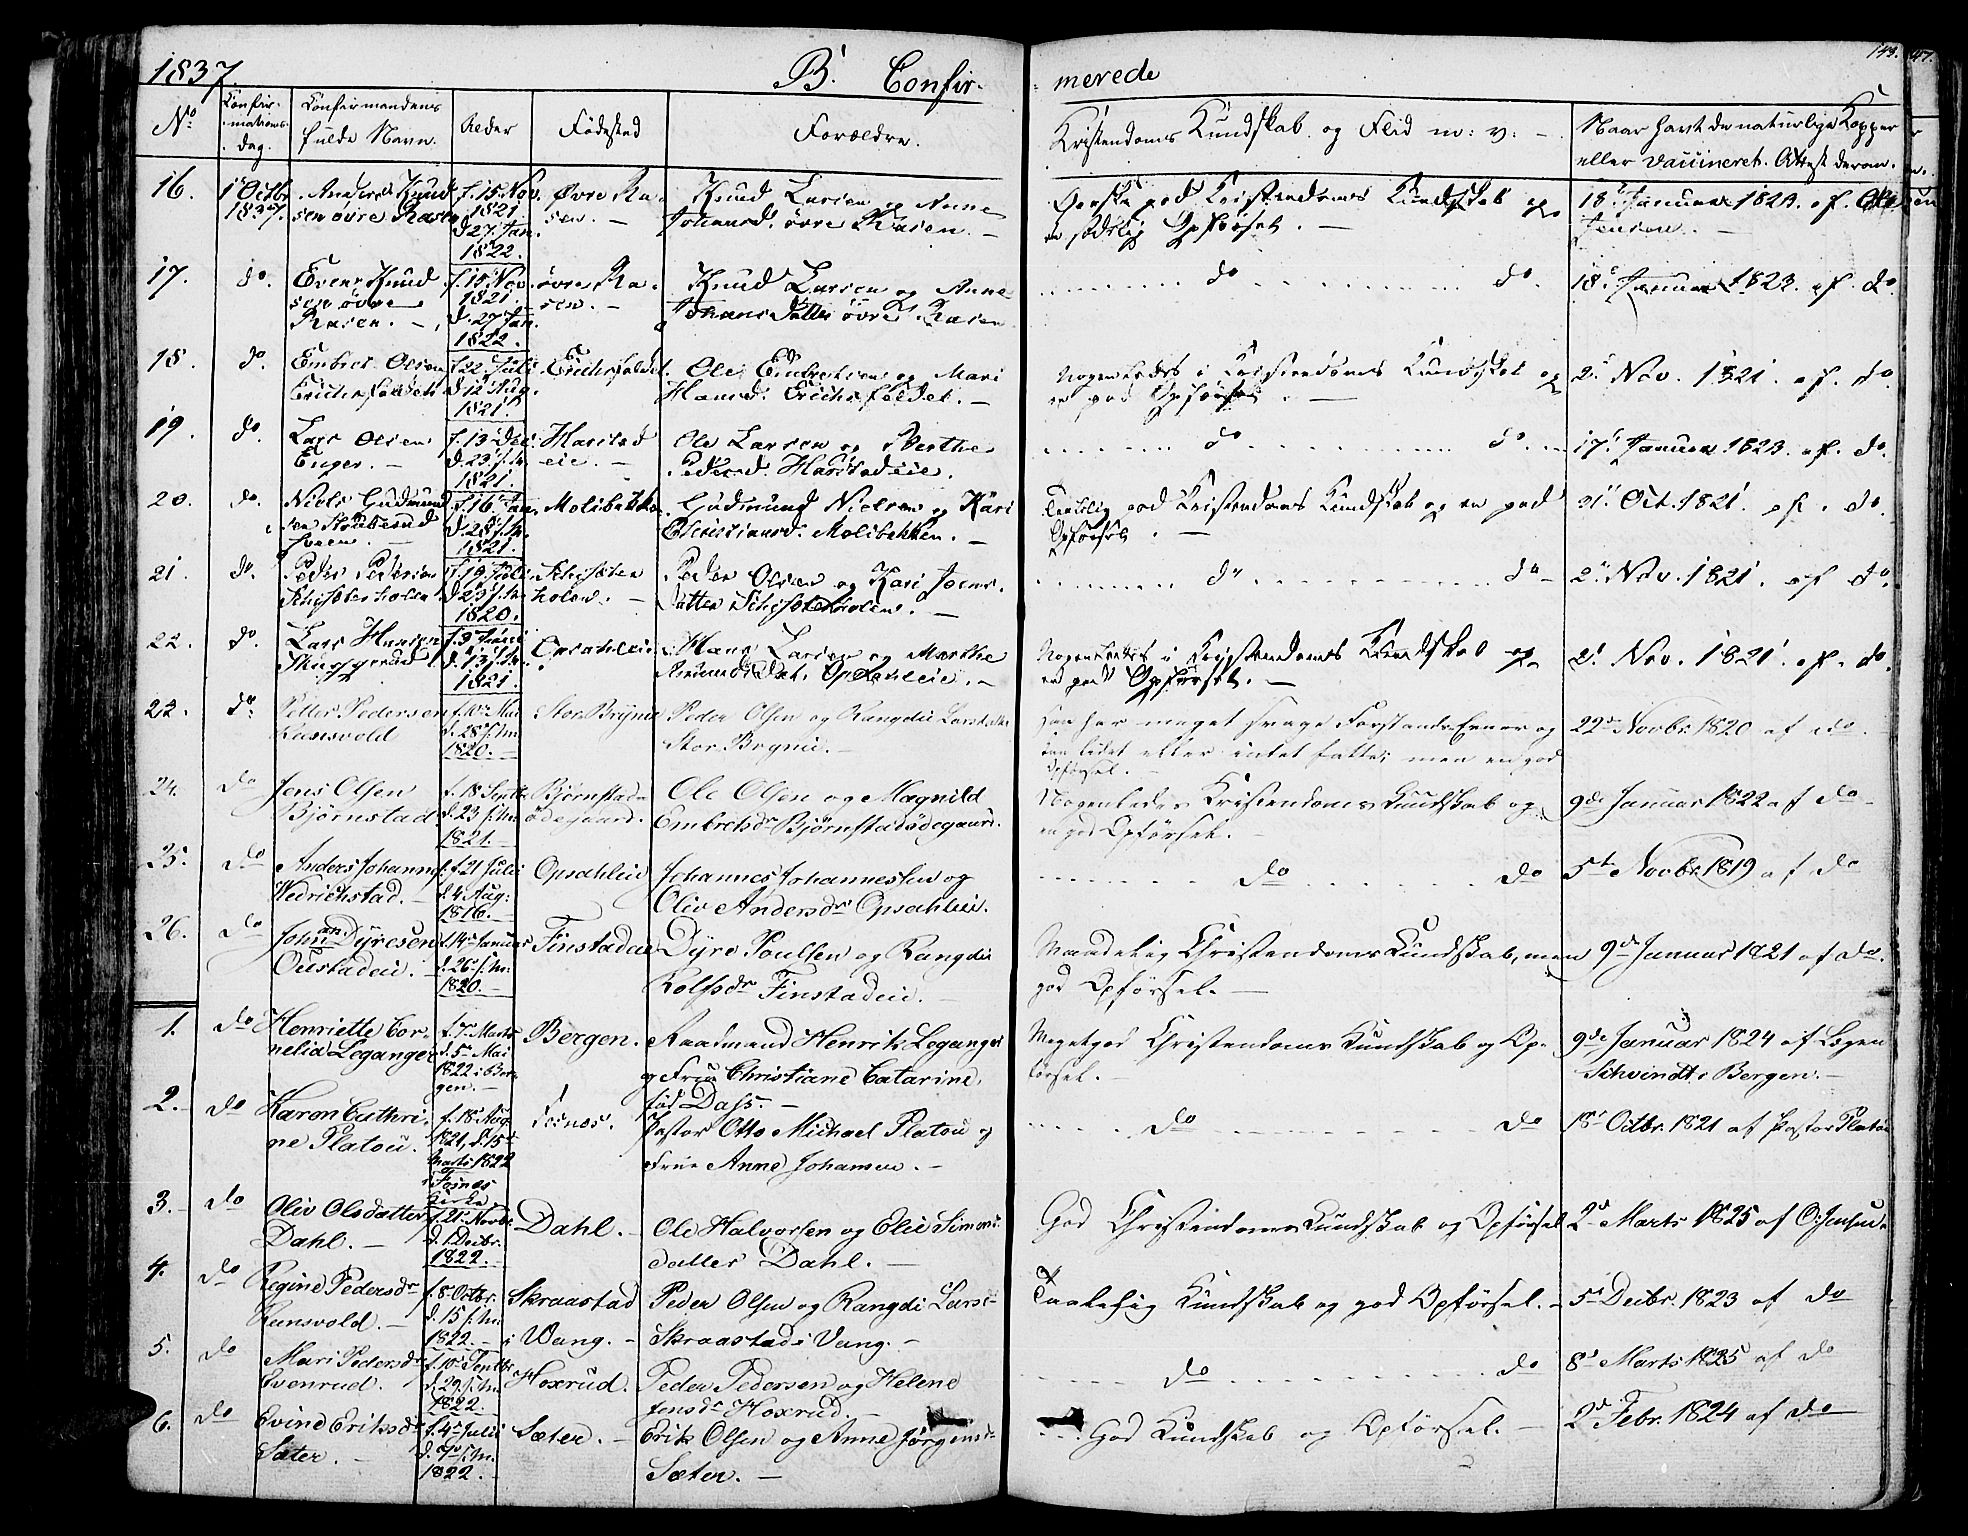 1837.
B. Confir-
merede
143.
No
Confir-
mations-
dag.
Confirmandens
fulde Navn.
Alder
Fødested
Forældre.
Kristendoms Kundskab og Flid m: v: -
Naar havt de naturlige Kopper
eller vaccineret. Attest derom.
16.
1t Octbr
1837.
Anders Knud
sen øvre Rasen
f. 15. Nov.
1821
d. 27. Jan.
1822.
Øvre Ra-
sen. -
Knud Larsen og Anne
Johansd. øvre Rasen. -
Ganske god Kristendoms Kundskab og
en sædelig Opførsel. -
18. Januar 1823. af
Jensen. -
17.
do.
Even Knud
sen øvre
Rasen. -
f. 15. Nov.
1821.
d. 27 Jan.
1822.
øvre Ra-
sen. -
Knud Larsen og Anne
Johans Datter øvre Rasen
do do.
18. Januar 1823. af. do.
18.
do.
Embret Olsen
Erichsfeldet
f. 22. Juli
d. 12. Aug.
1821.
Erichsfeldet.
Ole Embretsen og Mari
Hansd. Erichsfeldet. -
Nogenledes i Kristendoms Kundskab og
en god Opførsel. -
2. Nov. 1821. af. do.
19.
do.
Lars Olsen
Enger. -
f. 13. Dec.
d. 23. s. M.
1821.
Harstad
eie. -
Ole Larsen og Berthe
Pedersd. Harstadeie.
do do.
17. Januar 1823. af. do.
20.
do.
Niels Gudmund
sen
f. 16. Jan.
d. 28. s. M.
1821.
Molibekken
Gudmund Nielsen og Kari
Christiansd. Molibekken. -
Temlig god Kristendoms Kundskab og en god
Opførsel. -
31. Oct. 1821. af. do.
21.
do.
Peder Pedersen
f. 19. Juli
d. 23. s. M.
1820.
Peder Olsen og Kari Joens
datter
do do
2. Nov. 1821. af do.
22.
do.
Lars Hansen
d. 13. s. M.
1821.
Opsahleie
Hans Larsen og Marthe
Opsahleie. -
Nogenledes i Kristendoms Kundskab og
en god Opførsel. -
2. Nov. 1821. af. do.
23.
do.
Petter Pedersen
Runsvold
f. 10de Mai
d. 28 s. M.
1820. -
Stor Brynie
Peder Olsen og Rangdie Larsd.
Stor Brynie. -
Han har meget svage Forstands-Evner og
kan lidet eller intet fatte; men en god
Opførsel. -
22de Novbr. 1820 af do.
24.
do
Jens Olsen
Bjørnstad
f. 18 Septbr
d. 23 s. M.
1821. -
Bjørnstad-
ødegaard.
Ole Olsen og Magnild
Embretsdr Bjørnstadødegaard.
Nogenledes Kristendoms Kundskab og
en god Opførsel. -
9de Januar 1822 af do
25.
do
Anders Johannes
Wedrichstad. -
f. 21 Juli
d. 4 Aug:
1816. -
Opsahleie
Johannes Johannessen og
Oliv Andersdr Opsahleie.
do do
5te Novbr. 1819 af do
26.
do
Johan Dyresen
Oustadeie. -
f. 14. Januar
d. 26. s. M.
1820. -
Finstadeie
Dyre Poulsen og Rangdi
Rolfsdr Finstadeie. -
Maadelig Christendoms Kundskab, men
god Opførsel. -
9de Januar 1821 af do.
1.
do
Henriette Cor-
nelia Leganger
f. 7. Marts
d. 5. Mai
1822 i Ber-
gen. -
Bergen.
Raadmand Henrik Leganger
og Frue Christiane Catarine,
fød Dass. -
Meget god Christendoms Kundskab og Op-
førsel. -
9de Januar 1824 af Lægen
Schvindt i Bergen. -
2. -
do
Karen Cathri-
ne Platou.
f. 18. Aug
1821, d. 15
Marts 1822
i Fosnes
Kirke
Fosnes.
Pastor Otto Michael Platou og
Frue Anne Johansen. -
do do
18. Octbr. 1821 af Pastor Platou
3. -
do
Oliv Olsdatter
Dahl. -
f. 21. Novbr.
d. 1 Decbr.
1822. -
Dahl. -
Ole Halvorsen og Elie Simons-
datter Dahl. -
God Christendoms Kundskab og Opførsel
2d Marts 1825 af O: Jensen.
4.
do
Regine Pedersdr
Runsvold. -
f. 8. Octbr.
d. 15 s. M.
1822. -
Skraastad
i Wang. -
Peder Olsen og Rangdi Larsd-
Skraastad i Vang. -
Taalelig Kundskab og god Opførsel. -
5. Decbr. 1823 af do
5.
do
Mari Pedersdr
Evenrud.
f. 10. Septbr.
d. 29. s. M.
1822. -
Hoxrud.
Peder Pedersen og Helene
Jensdr Hoxrud. -
do do
8. Marts 1825 af do
6.
do
Evine Eriksdr
Sæter. -
f. 4. Julii
d. 7. s. M.
1822. -
Sæter. -
Erik Olsen og Anne Jørgensd-
Sæter. -
God Kundskab og Opførsel. -
2d Febr. 1824 af do